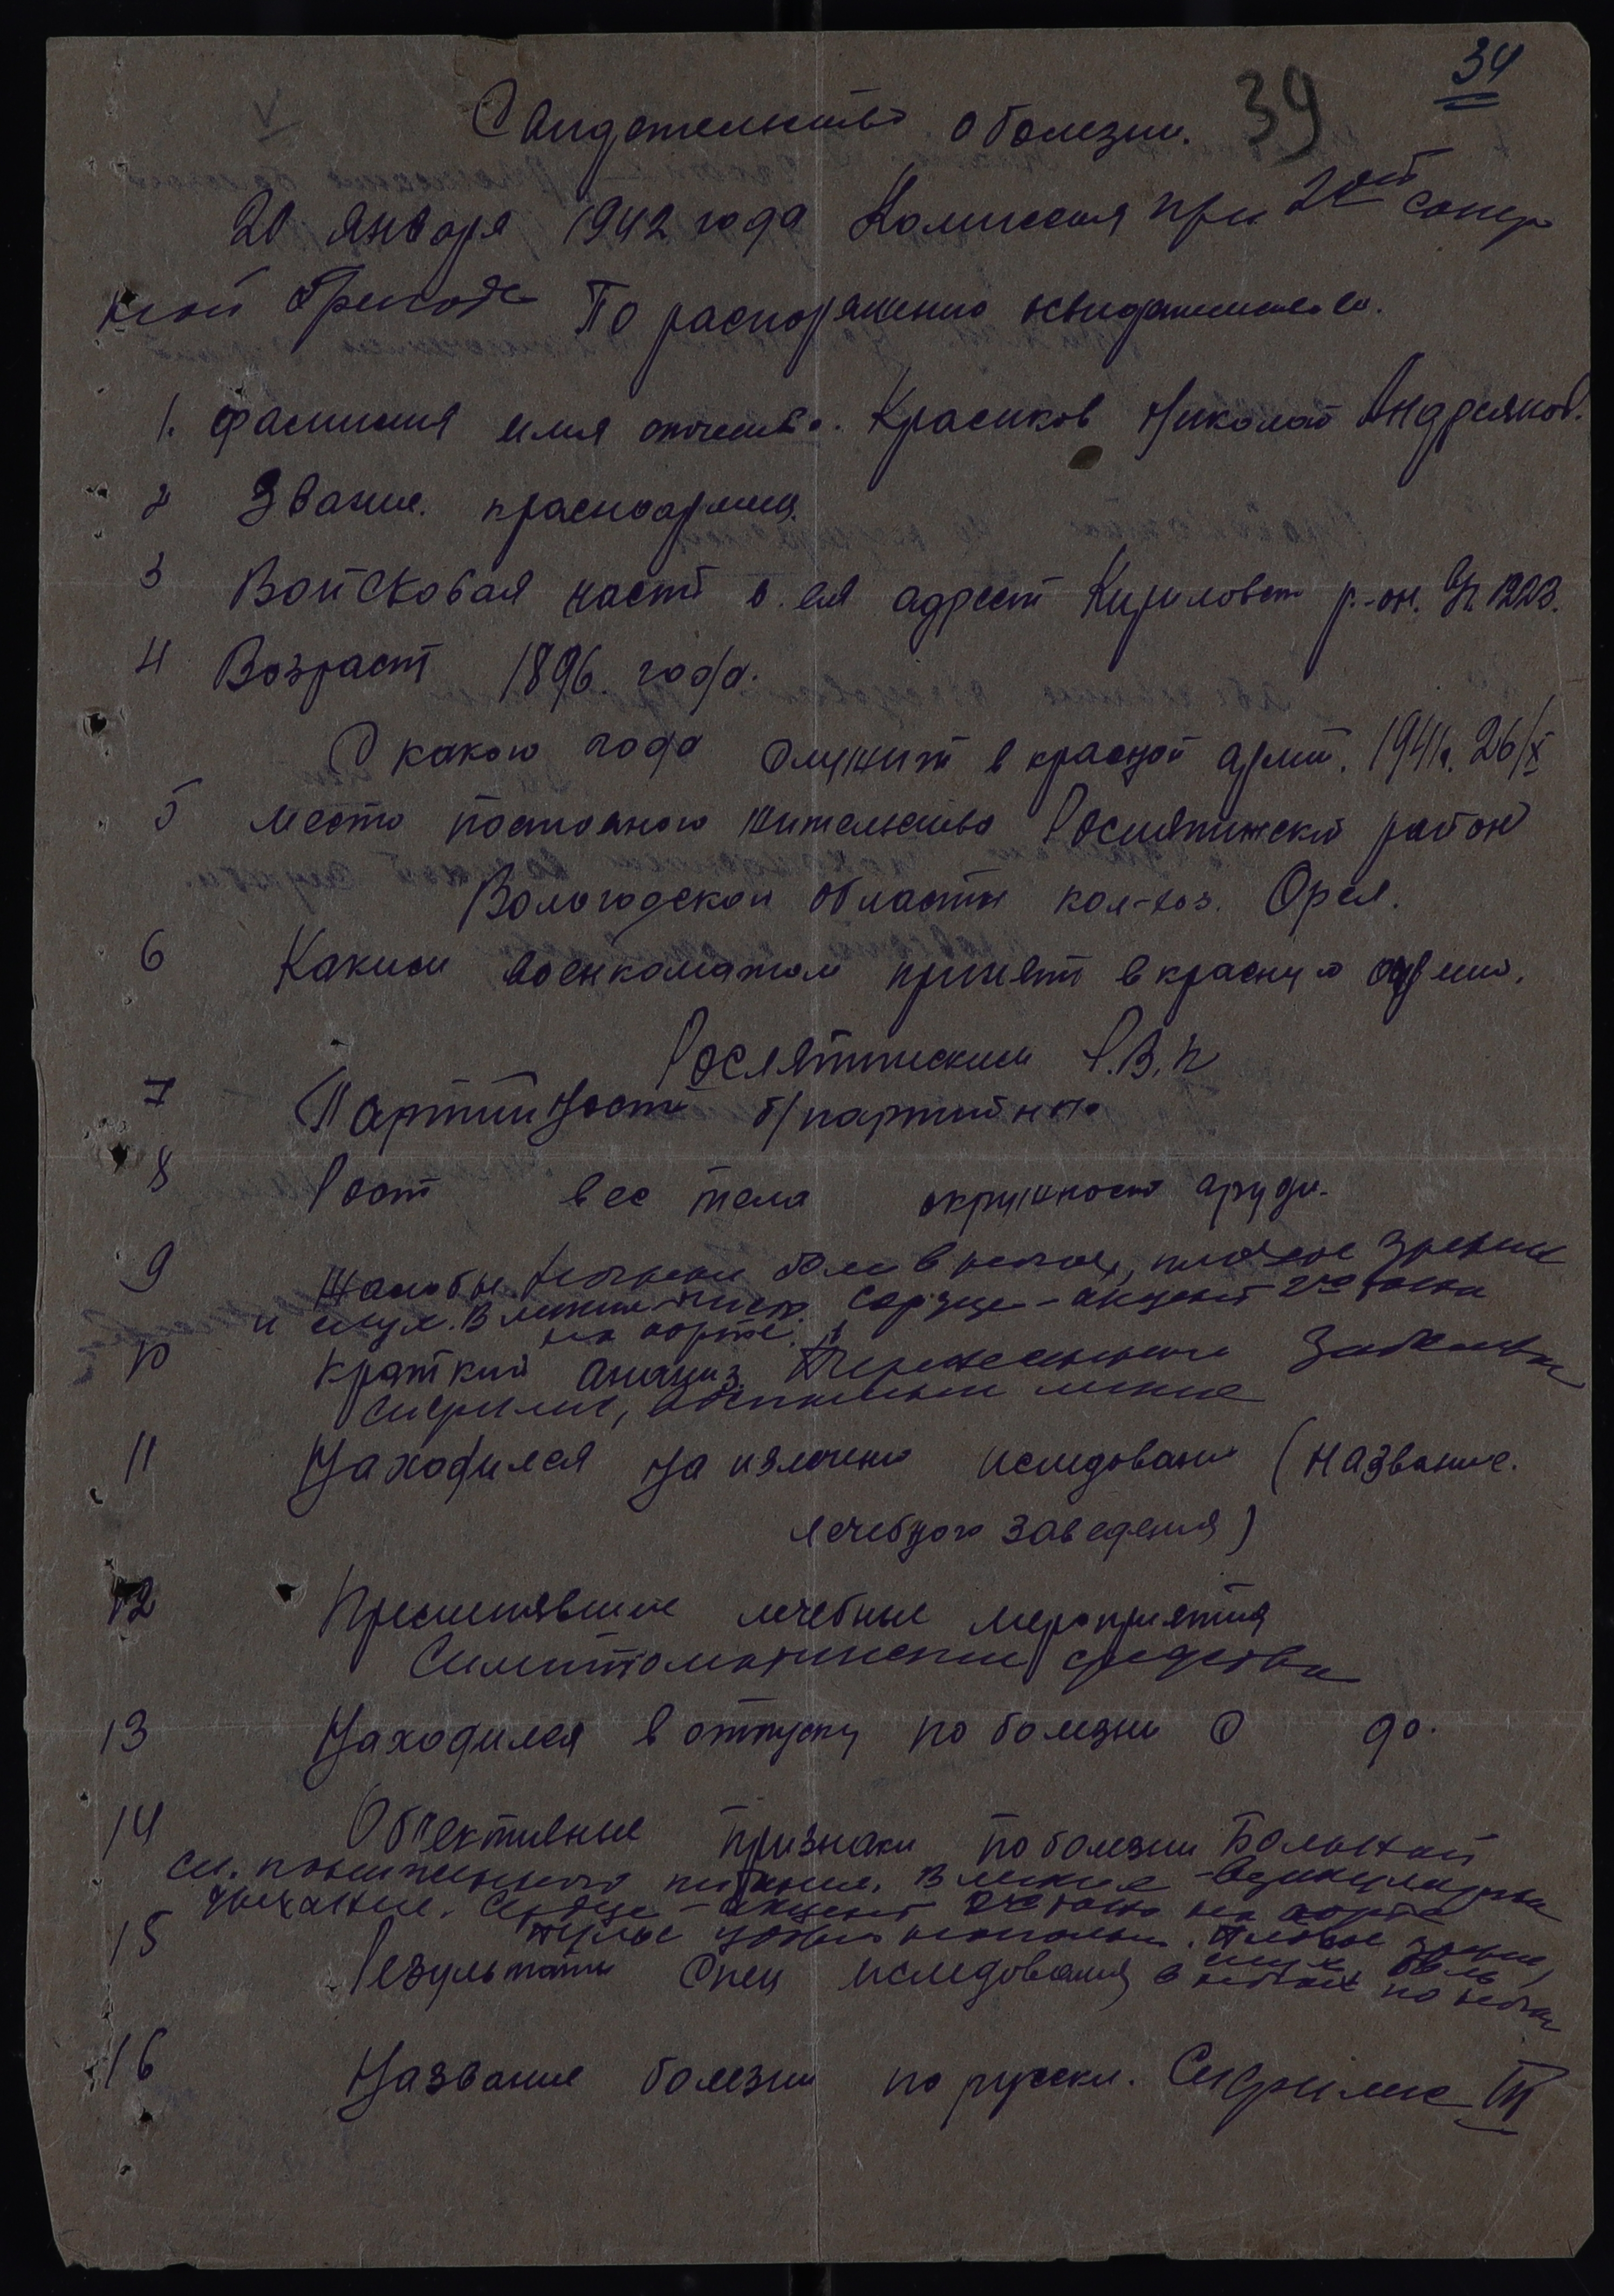 34
39
Свидетельство о болезни.
20 января 1942 года Комиссия при 20ой сапер
ной бригаде По распоряжению
1. фамилия имя отчество. Красиков Николай Андреянов.
2 Звание. красноармеец
3 Войсковая часть и. ея адрест Кириловск р.-он. УК 1223.
4 Возраст 1896 года.
С какого года служит в красной арми. 1941г. 26/X
5 место постояного жительства Рослятинский район
Вологодской области кол-хоз. Орел.
6 Каким военкоматом принят в красную армию.
Рослятинским Р.В.К
7 Партийность б/партийный
8 Рост вес тела окружность груди.
9 Жалобы. боли в ногах, плохое зрение
и слух. В легких Сердце - акцент 2го тона
на аорте.
10 краткий анамнез. Перенесенные заболева
Сифилис, воспаление легких
11 Находился на излечени иследовани (название.
лечебного заведения)
12 Применявшиие лечебные мероприятия
Симптоматические средства
13 Находился в отпуску по болезни С до.
14 Обьективные признаки по болезни Больной
питания. В легких - везикулярное
дыхание. Сердце - акцент 2го тона на аорте
тоны Плохое зрение,
15 Результаты Спец иследования слух боль
в ногах по ночам
16 Название болезни по русски. Сифилис III